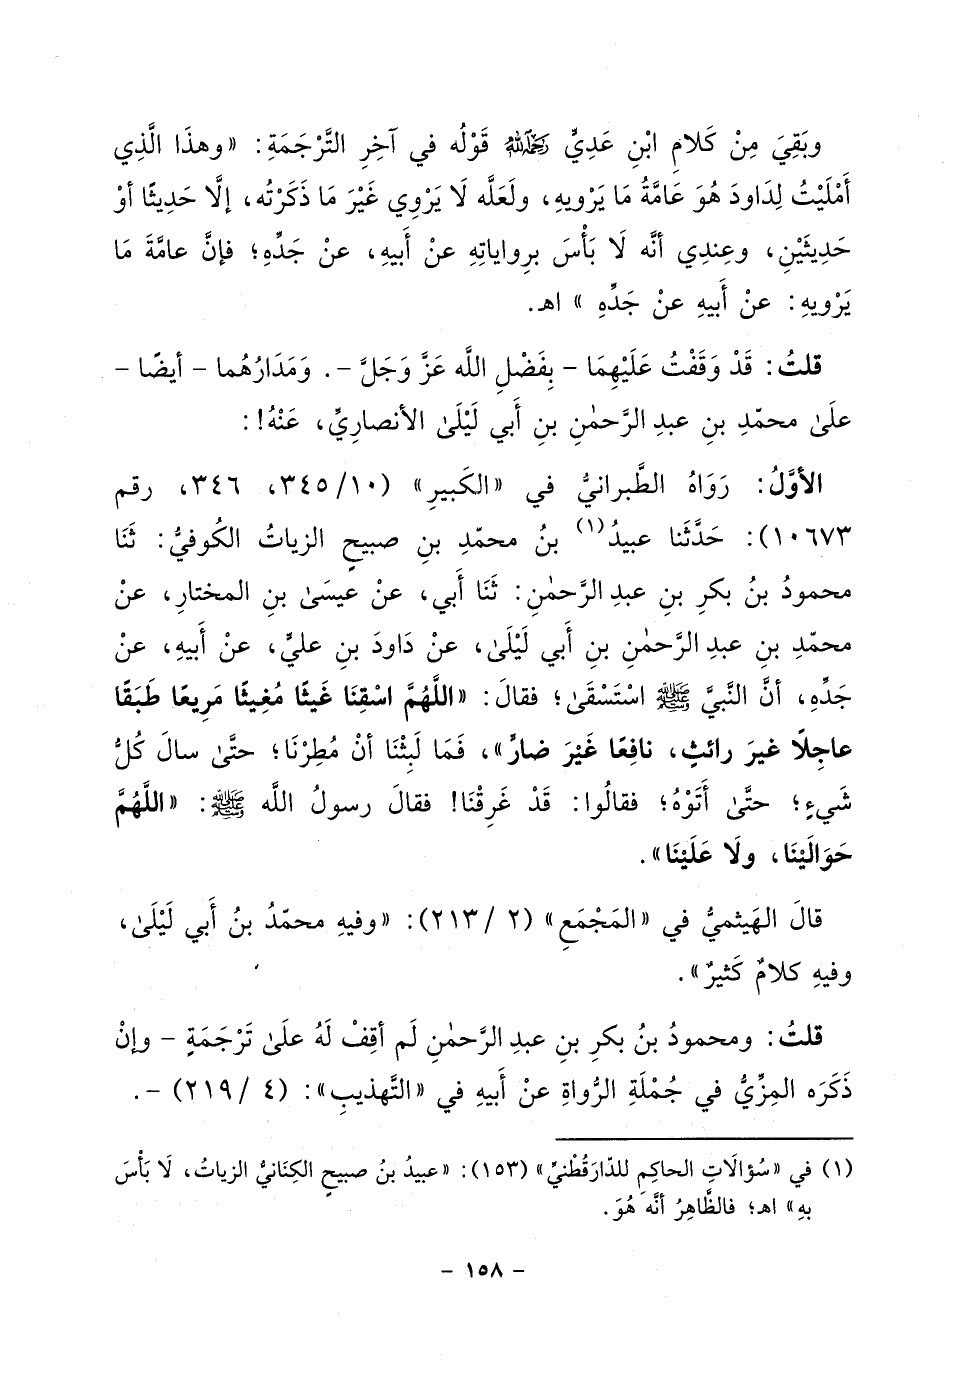 وبَقِيَ مِنْ كَلامِ ابْنِ عَدِيٍّ رَحِمَهُ اللهُ قَوْلُه في آخِرِ التَّرْجَمَةِ: «وهذَا الَّذِي
أَمْلَيْتُ لِدَاودَ هُوَ عَامَّةُ مَا يَرْويهِ، ولَعَلَّه لَا يَرْوِي غَيْرَ مَا ذَكَرْتُه، إلَّا حَدِيثًا أوْ
حَدِيثَيْنِ، وعِندِي أنَّه لَا بَأْسَ برِواياتِهِ عنْ أبيهِ، عنْ جَدِّهِ؛ فإنَّ عامَّةَ مَا
يَرْويهِ: عنْ أَبيهِ عنْ جَدِّهِ » اهـ.
قلتُ: قَدْ وَقَفْتُ عَلَيْهِمَا - بِفَضْلِ اللَّه عَزَّ وَجَلَّ -. وَمَدَارُهُما - أيضًا -
علَىٰ محمّدِ بنِ عبدِ الرَّحمٰنِ بنِ أَبي لَيْلَىٰ الأنصاريِّ، عَنْهُ!:
الأوَّلُ: رَوَاهُ الطَّبرانيُّ في «الكَبيرِ» (١٠/ ٣٤٥، ٣٤٦، رقم
١٠٦٧٣): حَدَّثَنا عبيدُ(١) بنُ محمّدِ بنِ صبيحٍ الزياتُ الكُوفيُّ: ثَنَا
محمودُ بنُ بكرِ بنِ عبدِ الرَّحمٰنِ: ثَنَا أَبي، عنْ عيسَىٰ بنِ المختارِ، عنْ
محمّدِ بنِ عبدِ الرَّحمٰنِ بنِ أَبي لَيْلَىٰ، عنْ دَاودَ بنِ عليٍّ، عنْ أَبيهِ، عنْ
جَدِّهِ، أنَّ النَّبيَّ ﷺ اسْتَسْقَىٰ؛ فقالَ: «اللَّهُمَّ اسْقِنَا غَيثًا مُغِيثًا مَرِيعًا طَبَقًا
عاجِلًا غيرَ رائثٍ، نافِعًا غَيْرَ ضارٍّ»، فَمَا لَبِثْنَا أنْ مُطِرْنَا؛ حتَّىٰ سالَ كُلُّ
شَيءٍ؛ حتَّىٰ أَتَوْهُ؛ فقالُوا: قَدْ غَرِقْنَا! فقالَ رسولُ اللَّه ﷺ: «اللَّهُمَّ
حَوَالَيْنَا، ولَا عَلَيْنَا».
قالَ الهَيثميُّ في «المَجْمَعِ» (٢ /٢١٣): «وفيهِ محمّدُ بنُ أَبي لَيْلَىٰ،
وفيهِ كلامٌ كَثيرٌ».
قلتُ: ومحمودُ بنُ بكرِ بنِ عبدِ الرَّحمٰنِ لَم أقِفْ لَهُ علَىٰ تَرْجَمَةٍ - وإنْ
ذَكَرَه المِزِّيُّ في جُمْلَةِ الرُّواةِ عنْ أَبيهِ في «التَّهذيبِ»: (٤ /٢١٩) -.
(١) في «سُؤالَاتِ الحاكِمِ للدَّارَقُطْنيِّ» (١٥٣): «عبيدُ بنُ صبيحٍ الكِنَانيُّ الزياتُ، لَا بَأْسَ
بهِ» اهـ؛ فالظَّاهِرُ أنَّه هُوَ.
- ١٥٨ -